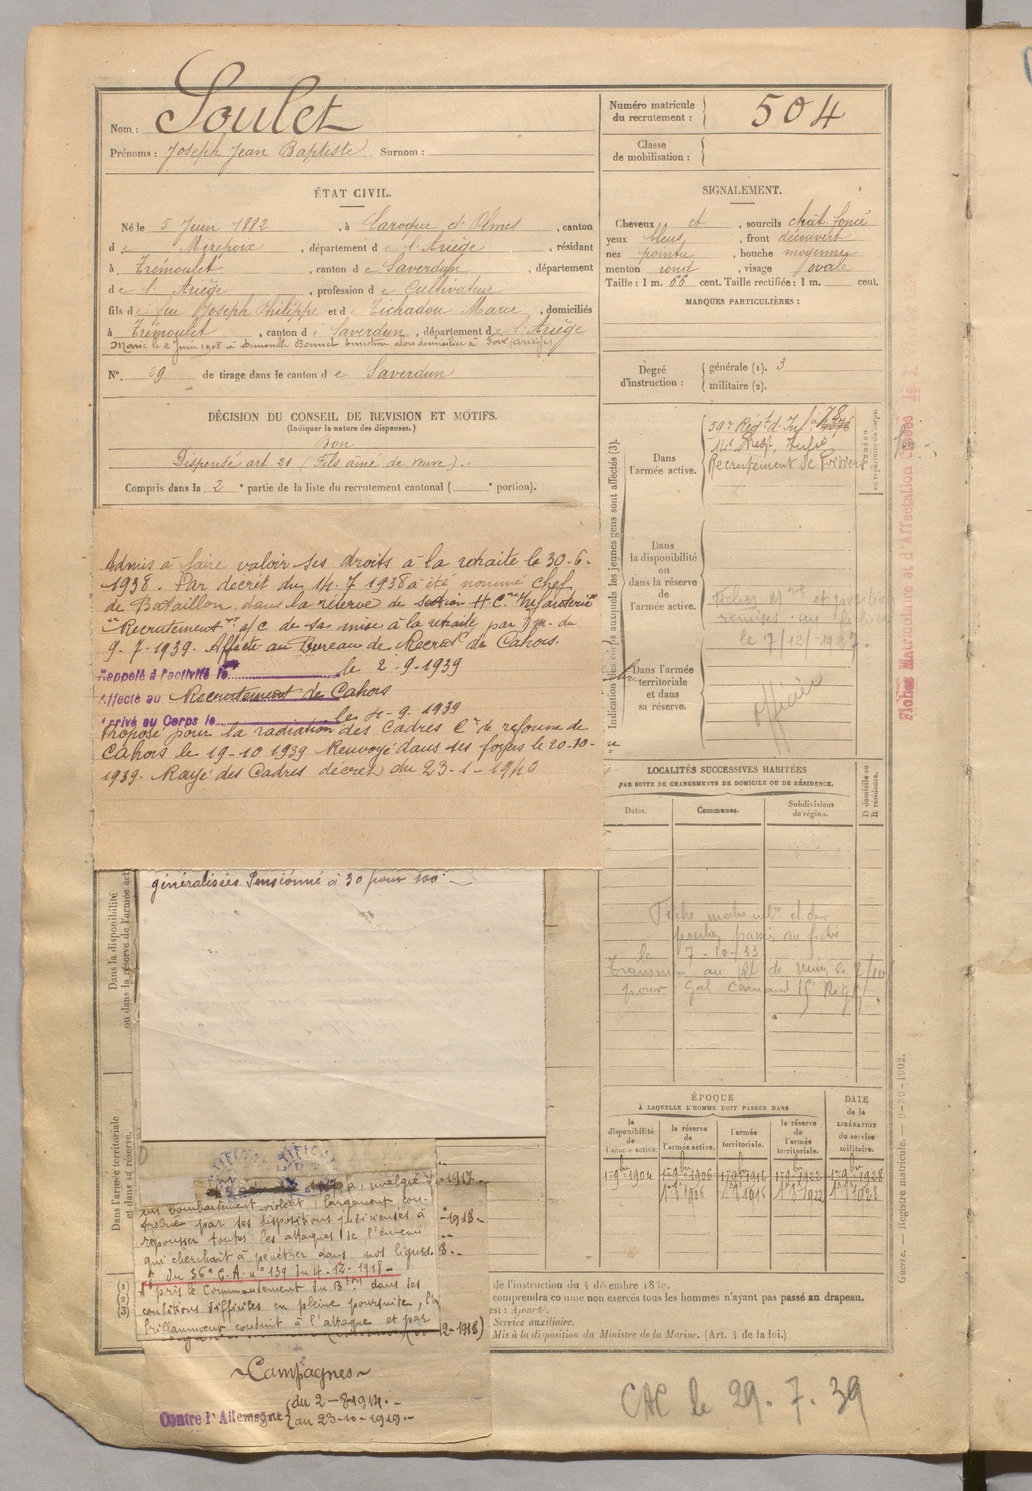 Nom : Soulet
Prénoms : Joseph Jean Baptiste Surnom :
Numéro matricule du recrutement : 504
Classe de mobilisation :
ÉTAT CIVIL.
Né le 5 Juin 1882, à Laroque d'Olmes, canton
d e Mirepoix, département d e l'Ariège, résidant
à Trémoulet, canton d e Saverdun, département
d e l'Ariège, profession d e Cultivateur
fils d e feu Joseph Philippe et d e Tichadou Marie, domiciliés
à Trémoulet, canton d e Saverdun, département d e l'Ariège
Marié le 2 Juin 1908 à Demoiselle Bonnet Ernestine alors domiciliée à Foix (Ariège)
N° 39 de tirage dans le canton d e Saverdun
DÉCISION DU CONSEIL DE REVISION ET MOTIFS.
(Indiquer la nature des dispenses.)
Bon
Dispensé art. 21 (Fils aîné de veuve).
Compris dans la 2e partie de la liste du recrutement cantonal ( e portion).
SIGNALEMENT.
Cheveux et, sourcils chât. foncé
yeux bleus, front découvert
nez pointu, bouche moyenne
menton rond, visage ovale
Taille : 1 m. 66 cent. Taille rectifiée : 1 m. cent.
MARQUES PARTICULIÈRES :
Degré d'instruction : générale (1). 3
militaire (2).
Indication des corps auxquels les jeunes gens sont affectés (3).
Dans l'armée active.
59e Régt d'Inf.
14e Régt Infie
Recrutement de Poitiers
Dans la disponibilité ou dans la réserve de l'armée active.
Fiches Mle et position
remises au fichier
le 7/12/1927.
Dans l'armée territoriale et dans sa réserve.
officier
Fiches Matricule et d'Affectation
Admis à faire valoir ses droits à la retraite le 30-6-
1938. Par décret du 14-7 1938 a été nommé Chef
de Bataillon, dans la réserve de section H.C. Infanterie
"Recrutement" a/c de sa mise à la retraite par D.M. du
9-7-1939. Affecté au Bureau de Recrut de Cahors.
Rappelé à l'activité le le 2-9-1939
Affecté au Recrutement de Cahors
Arrivé au Corps le le 4-9-1939
Proposé pour la radiation des Cadres Con de réforme de
Cahors le 19-10 1939 Renvoyé dans ses foyers le 20-10-
1939. Rayé des Cadres décret du 23-1-1940
LOCALITÉS SUCCESSIVES HABITÉES
PAR SUITE DE CHANGEMENTS DE DOMICILE OU DE RÉSIDENCE.
Dates. Communes. Subdivisions de région. D domicile ou R résidence.
le 7-10-33
généralisées Pensionné à 30 pour 100.
Dans la disponibilité ou dans la réserve de l'armée act
Dans l'armée territoriale et dans sa réserve.
ÉPOQUE
À LAQUELLE L'HOMME DOIT PASSER DANS
la disponibilité de l'armée active. la réserve de l'armée active. l'armée territoriale. la réserve de l'armée territoriale.
DATE de la LIBÉRATION du service militaire.
a, malgré
un bombardement violent, largement con-
tribué par ses dispositions judicieuses à
repousser toutes les attaques de l'ennemi
qui cherchait à pénétrer dans nos lignes.
du 36e C.A. n° 139 du 4-12-1918-
A pris le Commandement du Bton dans des
conditions difficiles en pleine poursuite, l'a
brillamment conduit à l'attaque et par
-1917-
-1918-
8.-
12-1918)
Campagnes
Contre l'Allemagne du 2-8-1914.-
au 23-10-1919.-
(1)
(2)
(3)
de l'instruction du 4 décembre 1889.
comprendra comme non exercés tous les hommes n'ayant pas passé au drapeau.
est : Ajourné.
Service auxiliaire.
Mis à la disposition du Ministre de la Marine. (Art. 4 de la loi.)
Guerre. — Registre matricule.
CAC le 29.7.39